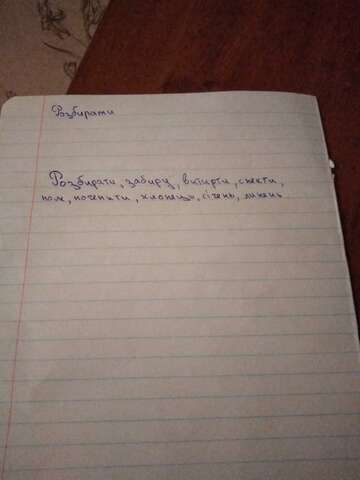 Розбирати
Розбирати, забиру, витирти, спекти,
пом, почепити, хлопець, січень, липень